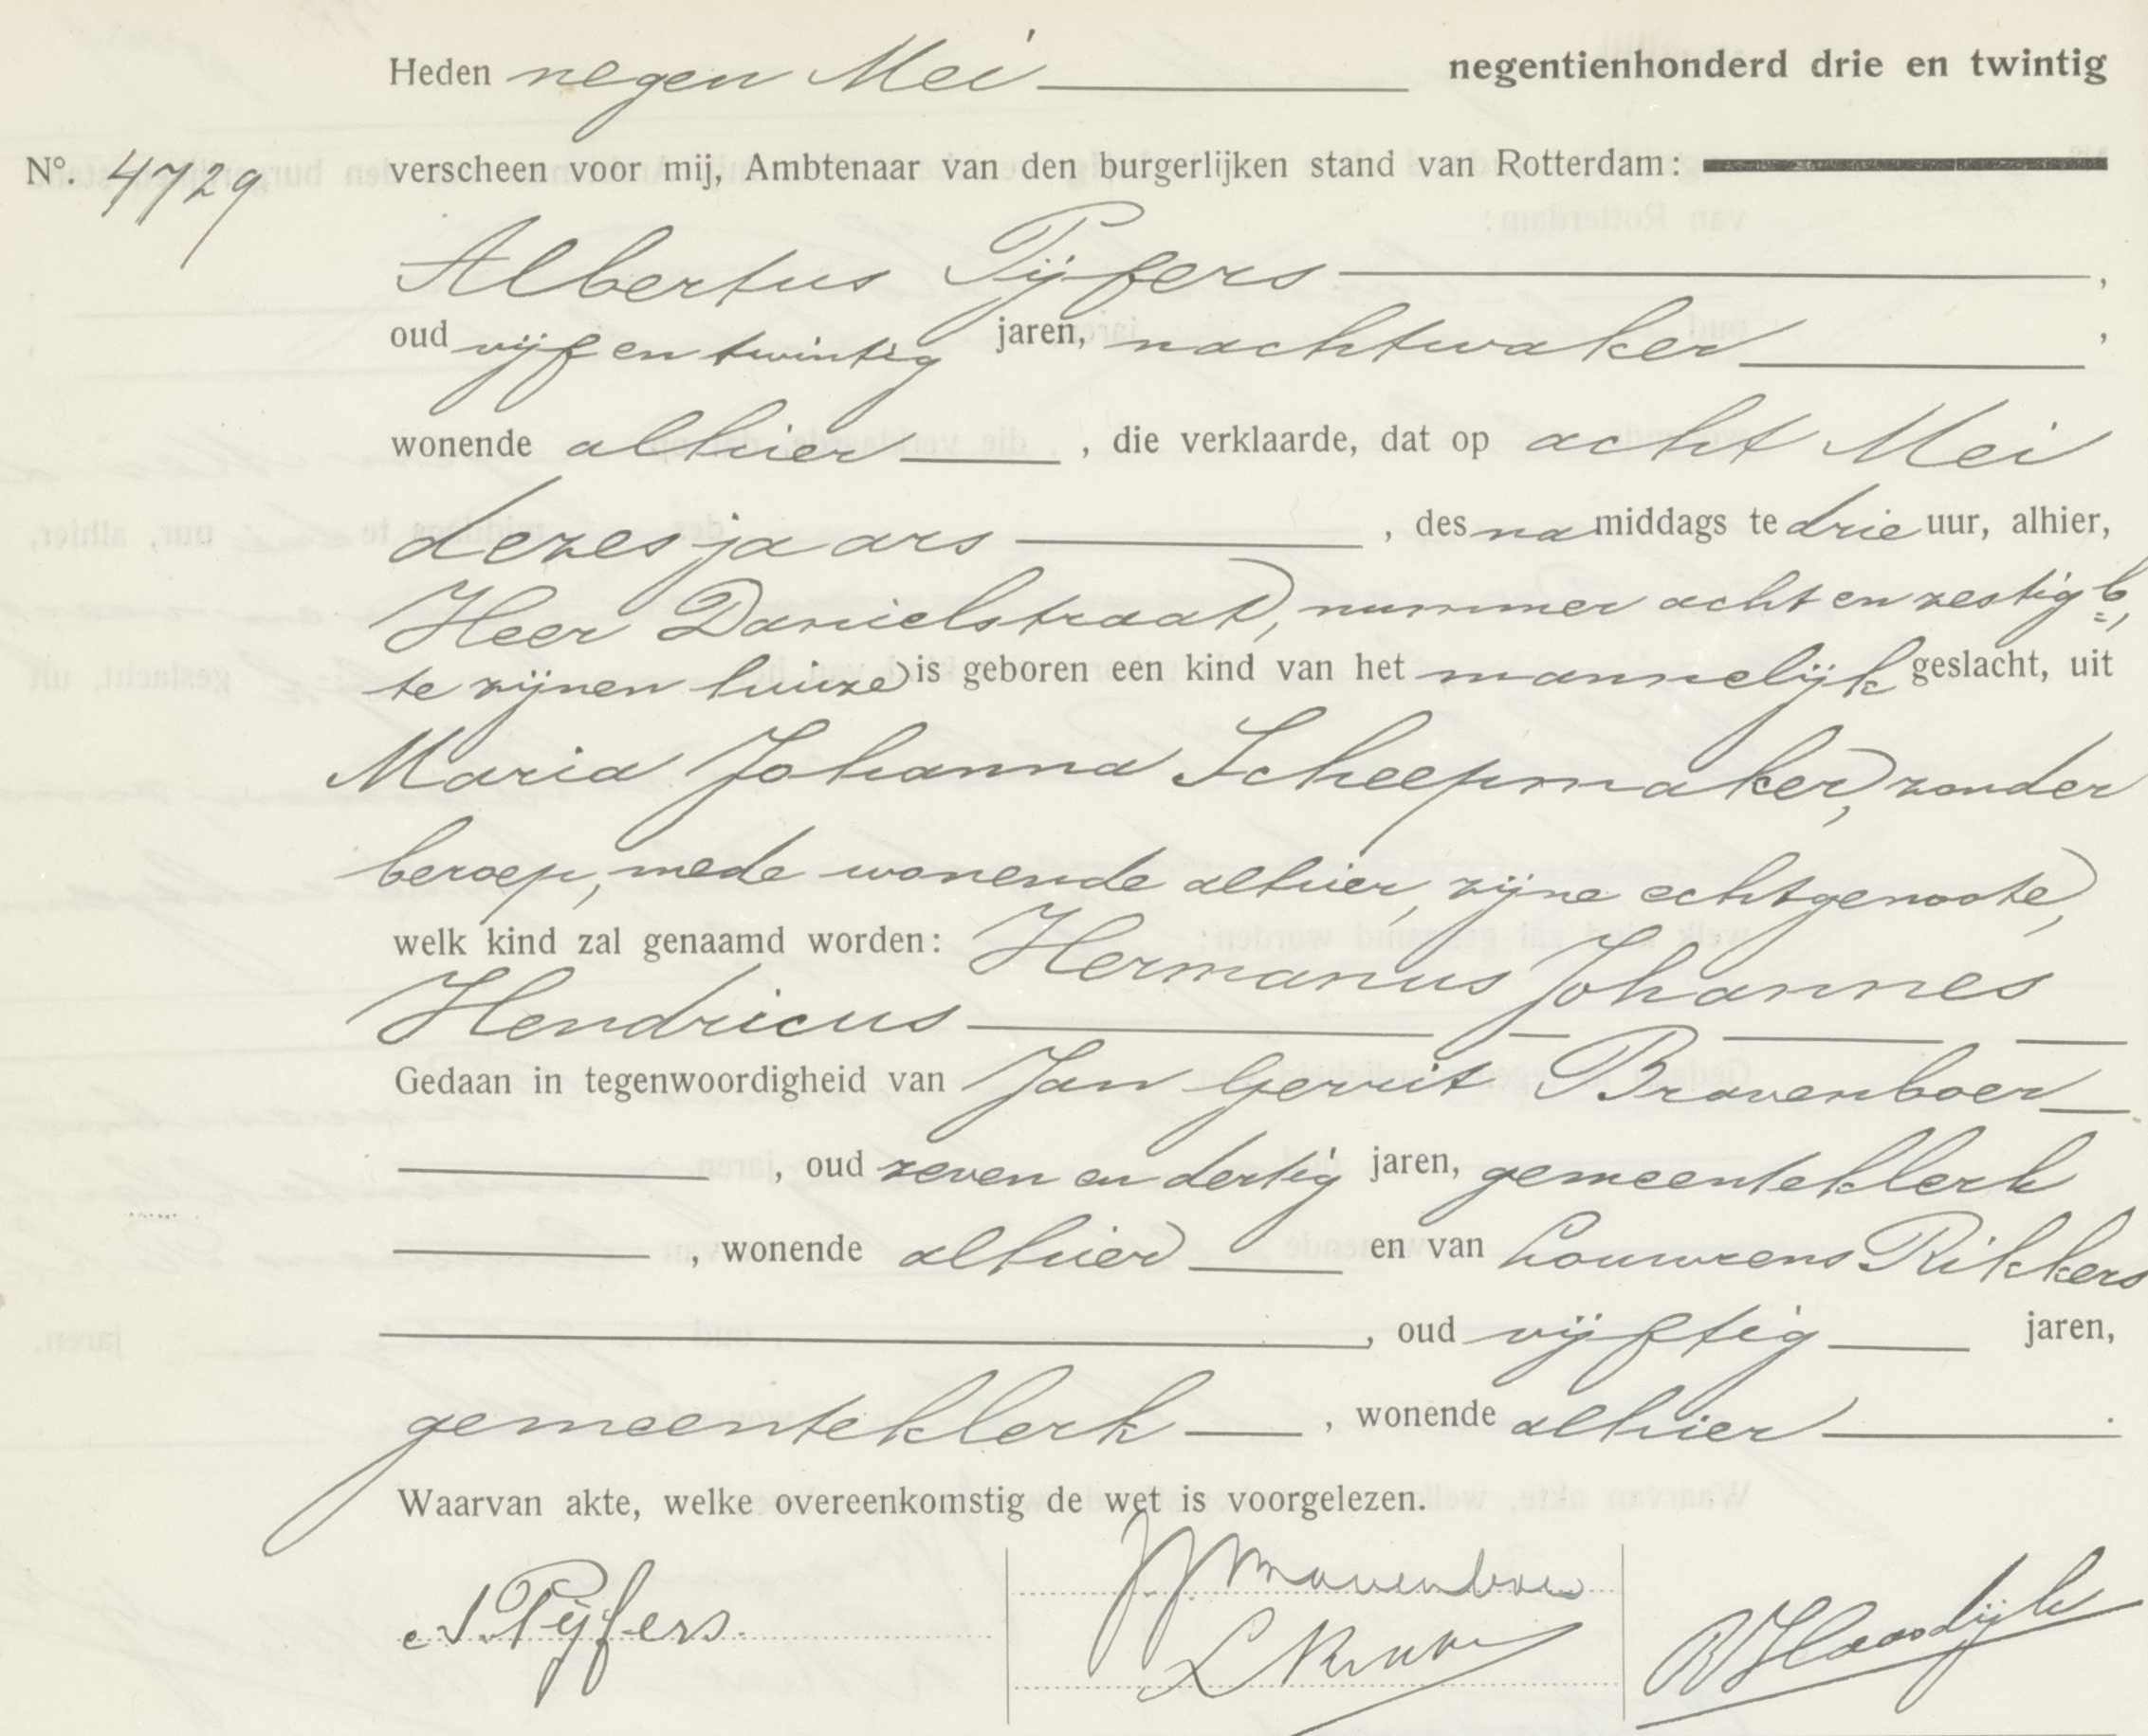 Heden negen Mei negentienhonderd drie en twintig
No. 4729 verscheen voor mij, Ambtenaar van den burgerlijken stand van Rotterdam:
Albertus Pijfers,
oud vijf en twintig jaren, nachtwaker,
wonende alhier, die verklaarde, dat op acht Mei
dezes jaars, des namiddags te drie uur, alhier,
Heer Danielstraat, nummer acht en zestig b,
te zijnen huize is geboren een kind van het mannelijk geslacht, uit
Maria Johanna Scheepmaker, zonder
beroep, mede wonende alhier, zijne echtgenoote,
welk kind zal genaamd worden: Hermanus Johannes
Hendricus
Gedaan in tegenwoordigheid van Jan Gerrit Bravenboer
, oud zeven en dertig jaren, gemeenteklerk
, wonende alhier en van Louwrens Rikkers
, oud vijftig jaren,
gemeenteklerk, wonende alhier.
Waarvan akte, welke overeenkomstig de wet is voorgelezen.
A. Pijfers.